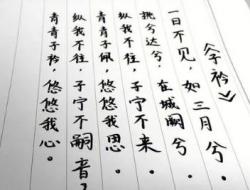 青青子衿，悠悠我心。
纵我不往，子宁不嗣音？
青青子佩，悠悠我思。
纵我不往，子宁不来。
挑兮达兮，在城阙兮。
一日不见，如三月兮。
《子衿》